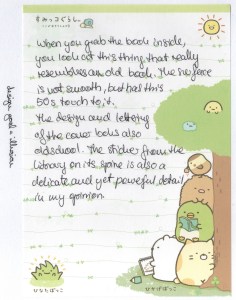 すみっコぐらし
When you grab the book inside,
you look at this thing that really
resembles an old book. The surface
is not smooth, but has this
50s touch to it.
The design and lettering
of the cover looks also
oldschool. The sticker from the
library on its spine is also a
delicate and yet powerful detail
in my opinion.
design goal = illusion
ひなたぼっこ
ひなたぼっこ